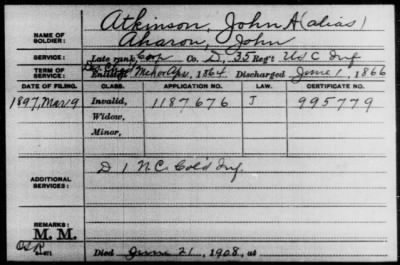 NAME OF SOLDIER: Atkinson, John A (alias)
Aharon, John
SERVICE: Late rank, Corp Co. D, 35 Reg't U S C Inf
TERM OF SERVICE: Enlisted Apr, 1864 Discharged June 1, 1866
DATE OF FILING. CLASS. APPLICATION NO. LAW. CERTIFICATE NO.
1897, Mar 9 Invalid, 1187676 J 995779
Widow,
Minor,
ADDITIONAL SERVICES: D 1 N.C. Col'd Inf.
REMARKS:
M. M.
Died June 21, 1908, at